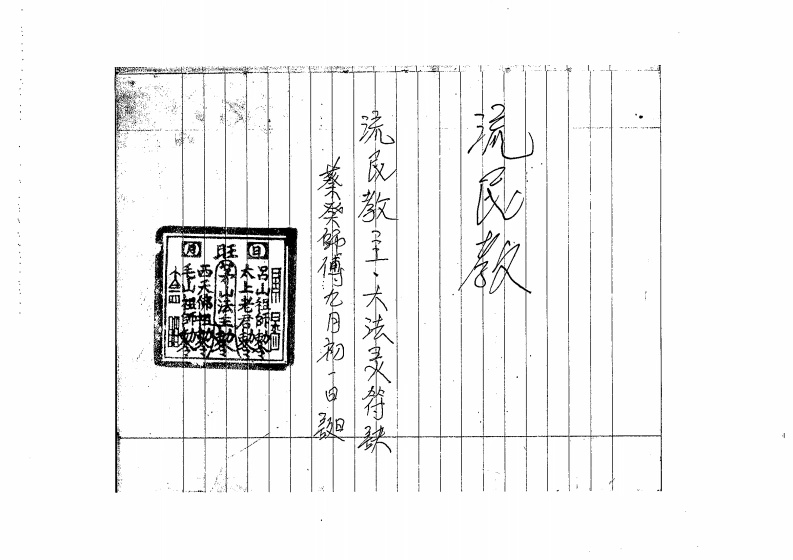 流民教
流民教主、大法灵符訣
蔡癸師傅九月初一日
日 旺 月
呂山祖師勅令
太上老君勅令
茅山法主勅令
西天佛祖勅令
毛山祖師勅令